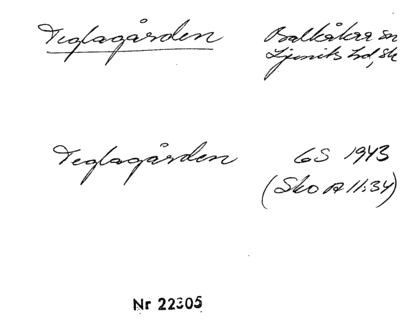 Teglagården Balkåkra sn
Ljunits hd, Sk
Teglagården GS 1943
(Sko A 11:34)
Nr 22305